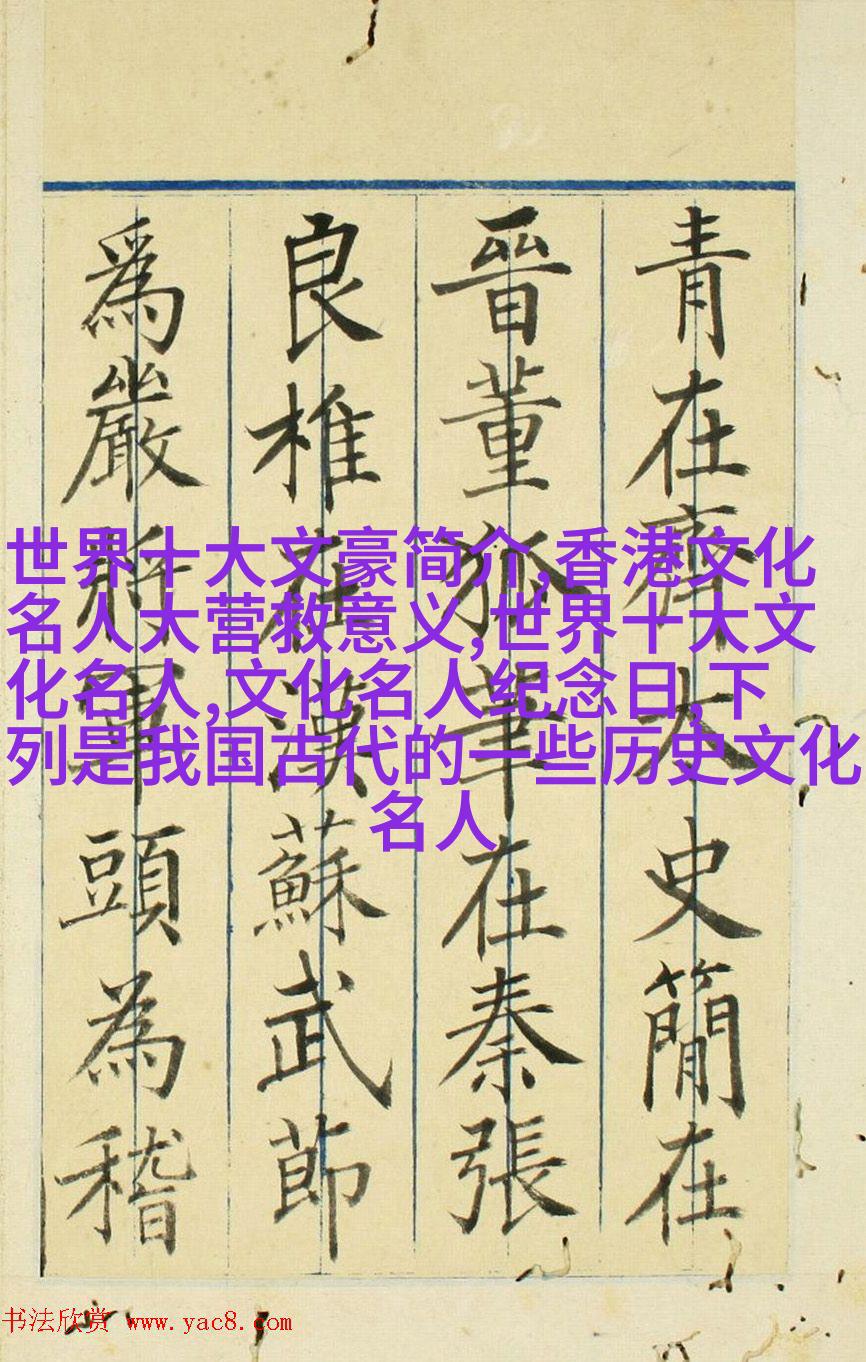 青在齊太史簡在
晉董狐筆在秦張
良椎在漢蘇武節
爲嚴將軍頭為稽
世界十大文豪简介,香港文化
名人大营救意义,世界十大文
化名人,文化名人纪念日,下
列是我国古代的一些历史文化
名人
书法欣赏 www.yac8.com